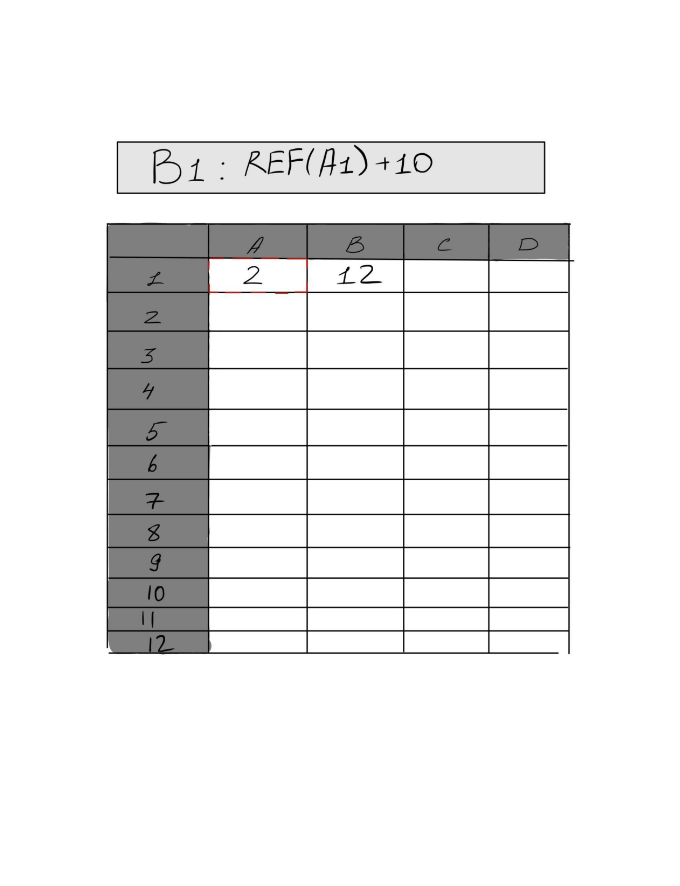 B1 : REF(A1)+10
A B C D
1 2 12
2
3
4
5
6
7
8
9
10
11
12